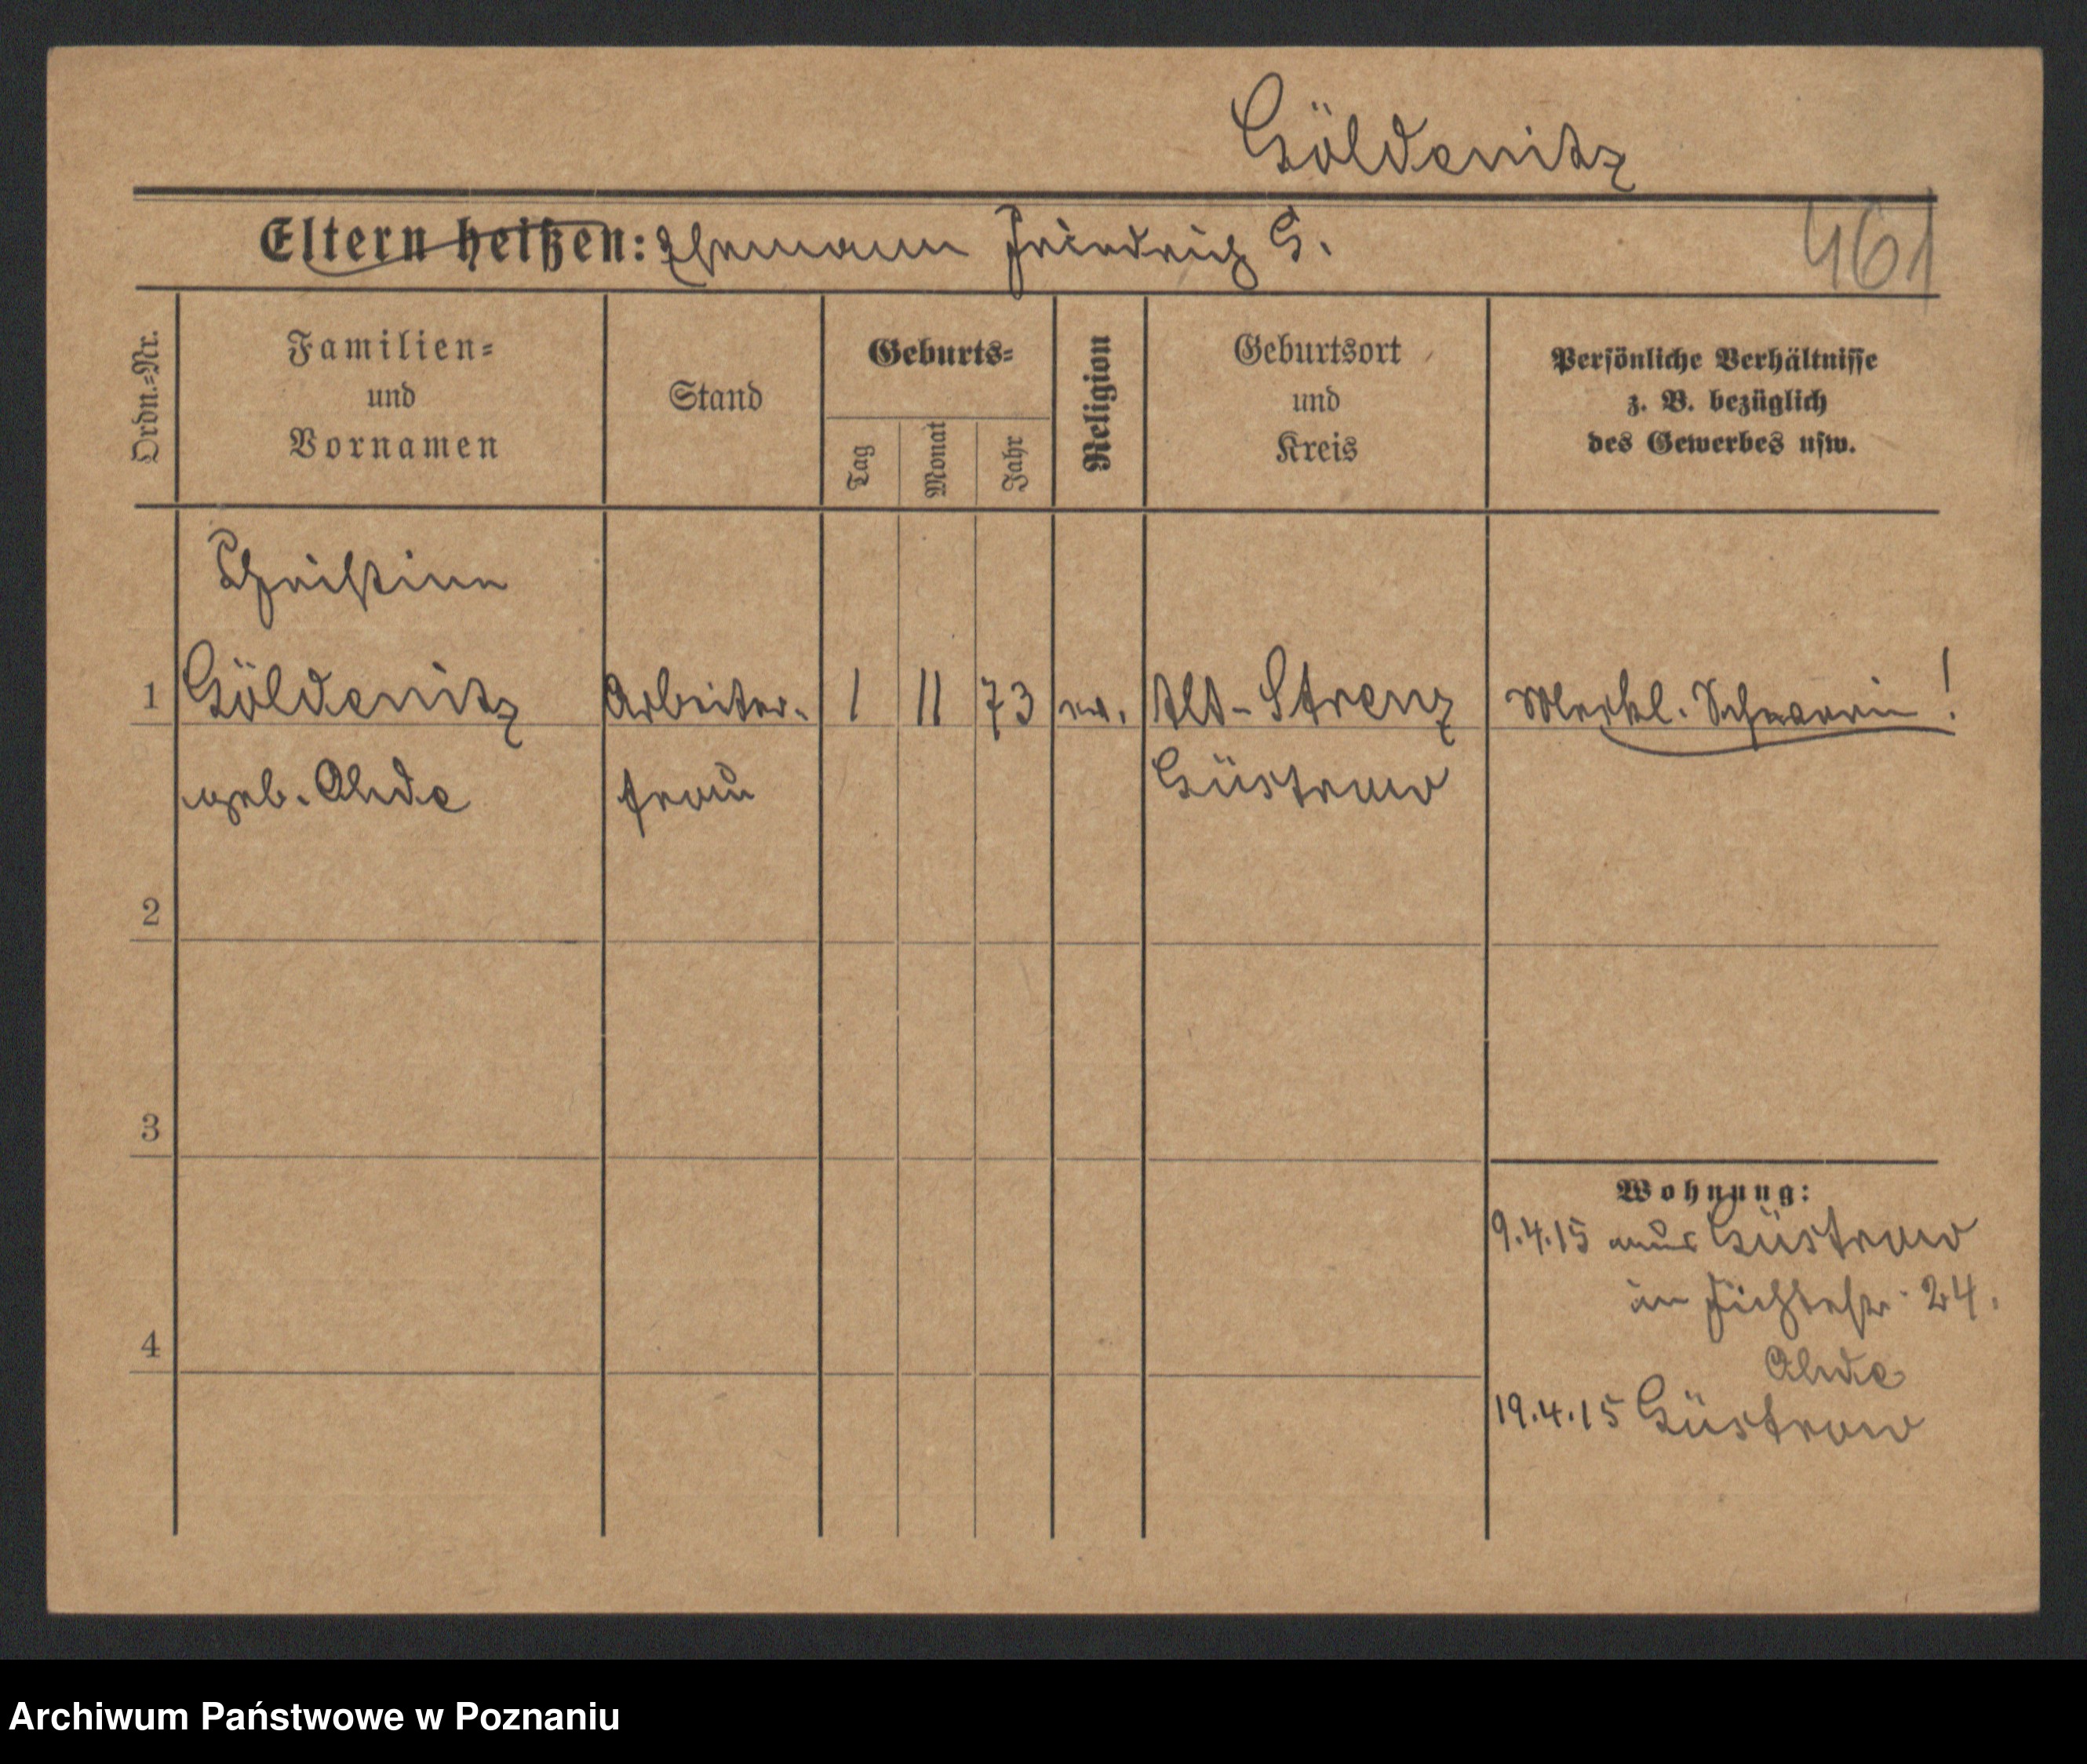 Göldenitz
Eltern heißen: Ehemann Friedrich G.
461
Ordn.=Nr.
Familien=
und
Vornamen
Stand
Geburts=
Tag
Monat
Jahr
Religion
Geburtsort
und
Kreis
Persönliche Verhältnisse
z. B. bezüglich
des Gewerbes usw.
Christine
1 Göldenitz Arbeiter- 1 11 73 ev. Alt-Strenz Meckl. Schwerin!
geb. Ahde frau Güstrow
2
3
Wohnung:
9.4.15 aus Güstrow
in Fichtestr. 24.
4
Ahde
19.4.15 Güstrow
Archiwum Państwowe w Poznaniu